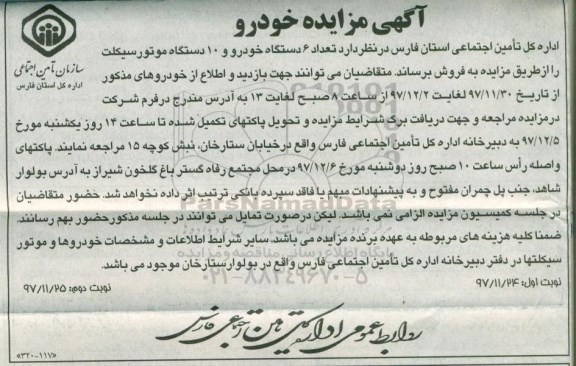 آگهی مزایده خودرو
سازمان تأمین اجتماعی
اداره کل استان فارس
اداره کل تأمین اجتماعی استان فارس در نظر دارد تعداد ۶ دستگاه خودرو و ۱۰ دستگاه موتور سیکلت
را از طریق مزایده به فروش برساند. متقاضیان می توانند جهت بازدید و اطلاع از خودروهای مذکور
از تاریخ ۹۷/۱۱/۳۰ لغایت ۹۷/۱۲/۲ از ساعت ۸ صبح لغایت ۱۳ به آدرس مندرج در فرم شرکت
در مزایده مراجعه و جهت دریافت برگ شرایط مزایده و تحویل پاکتهای تکمیل شده تا ساعت ۱۴ روز یکشنبه مورخ
۹۷/۱۲/۵ به دبیرخانه اداره کل تأمین اجتماعی فارس واقع در خیابان ستارخان، نبش کوچه ۱۵ مراجعه نمایند. پاکتهای
واصله رأس ساعت ۱۰ صبح روز دوشنبه مورخ ۹۷/۱۲/۶ در محل مجتمع رفاه گستر باغ گلخون شیراز به آدرس بولوار
شاهد، جنب پل چمران مفتوح و به پیشنهادات مبهم یا فاقد سپرده بانکی ترتیب اثر داده نخواهد شد. حضور متقاضیان
در جلسه کمیسیون مزایده الزامی نمی باشد. لیکن درصورت تمایل می توانند در جلسه مذکور حضور بهم رسانند.
ضمنا کلیه هزینه های مربوطه به عهده برنده مزایده می باشد. سایر شرایط اطلاعات و مشخصات خودروها و موتور
سیکلتها در دفتر دبیرخانه اداره کل تأمین اجتماعی فارس واقع در بولوار ستارخان موجود می باشد.
نوبت اول: ۹۷/۱۱/۲۴
نوبت دوم: ۹۷/۱۱/۲۵
روابط عمومی اداره کل تأمین اجتماعی فارس
«۳۲۰-۱۱۷»
ParsNamadData
پایگاه اطلاع رسانی مناقصه و مزایده
۰۲۱-۸۸۳۴۹۶۷۰-۵